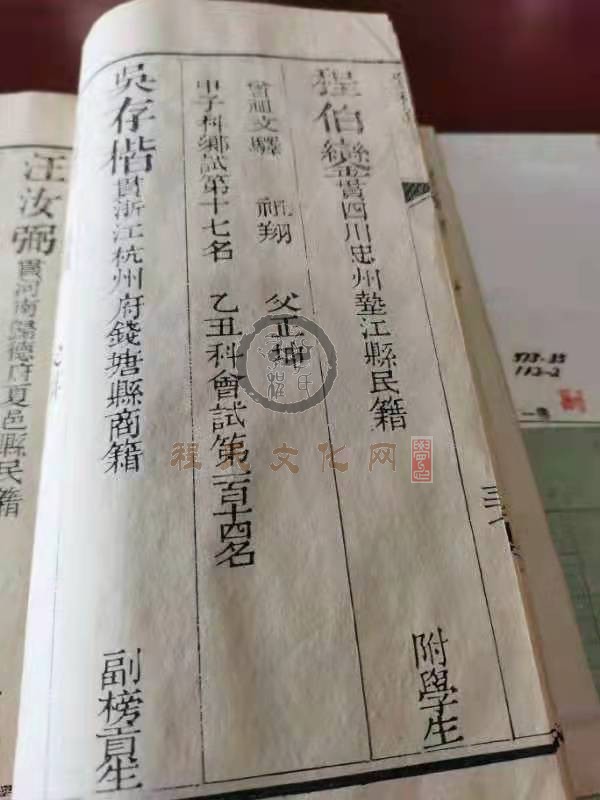 程伯鑾貫四川忠州墊江縣民籍 附學生
曾祖文驛 祖翔 父正坤
甲子科鄉試第十七名 乙丑科會試第二百十四名
吳存楷貫浙江杭州府錢塘縣商籍 副榜貢生
汪汝弼貫河南歸德府夏邑縣民籍
程氏文化网